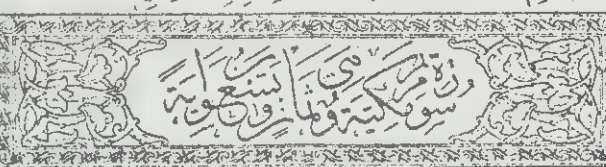 سورة مريم مكية وثمان وتسعون آية